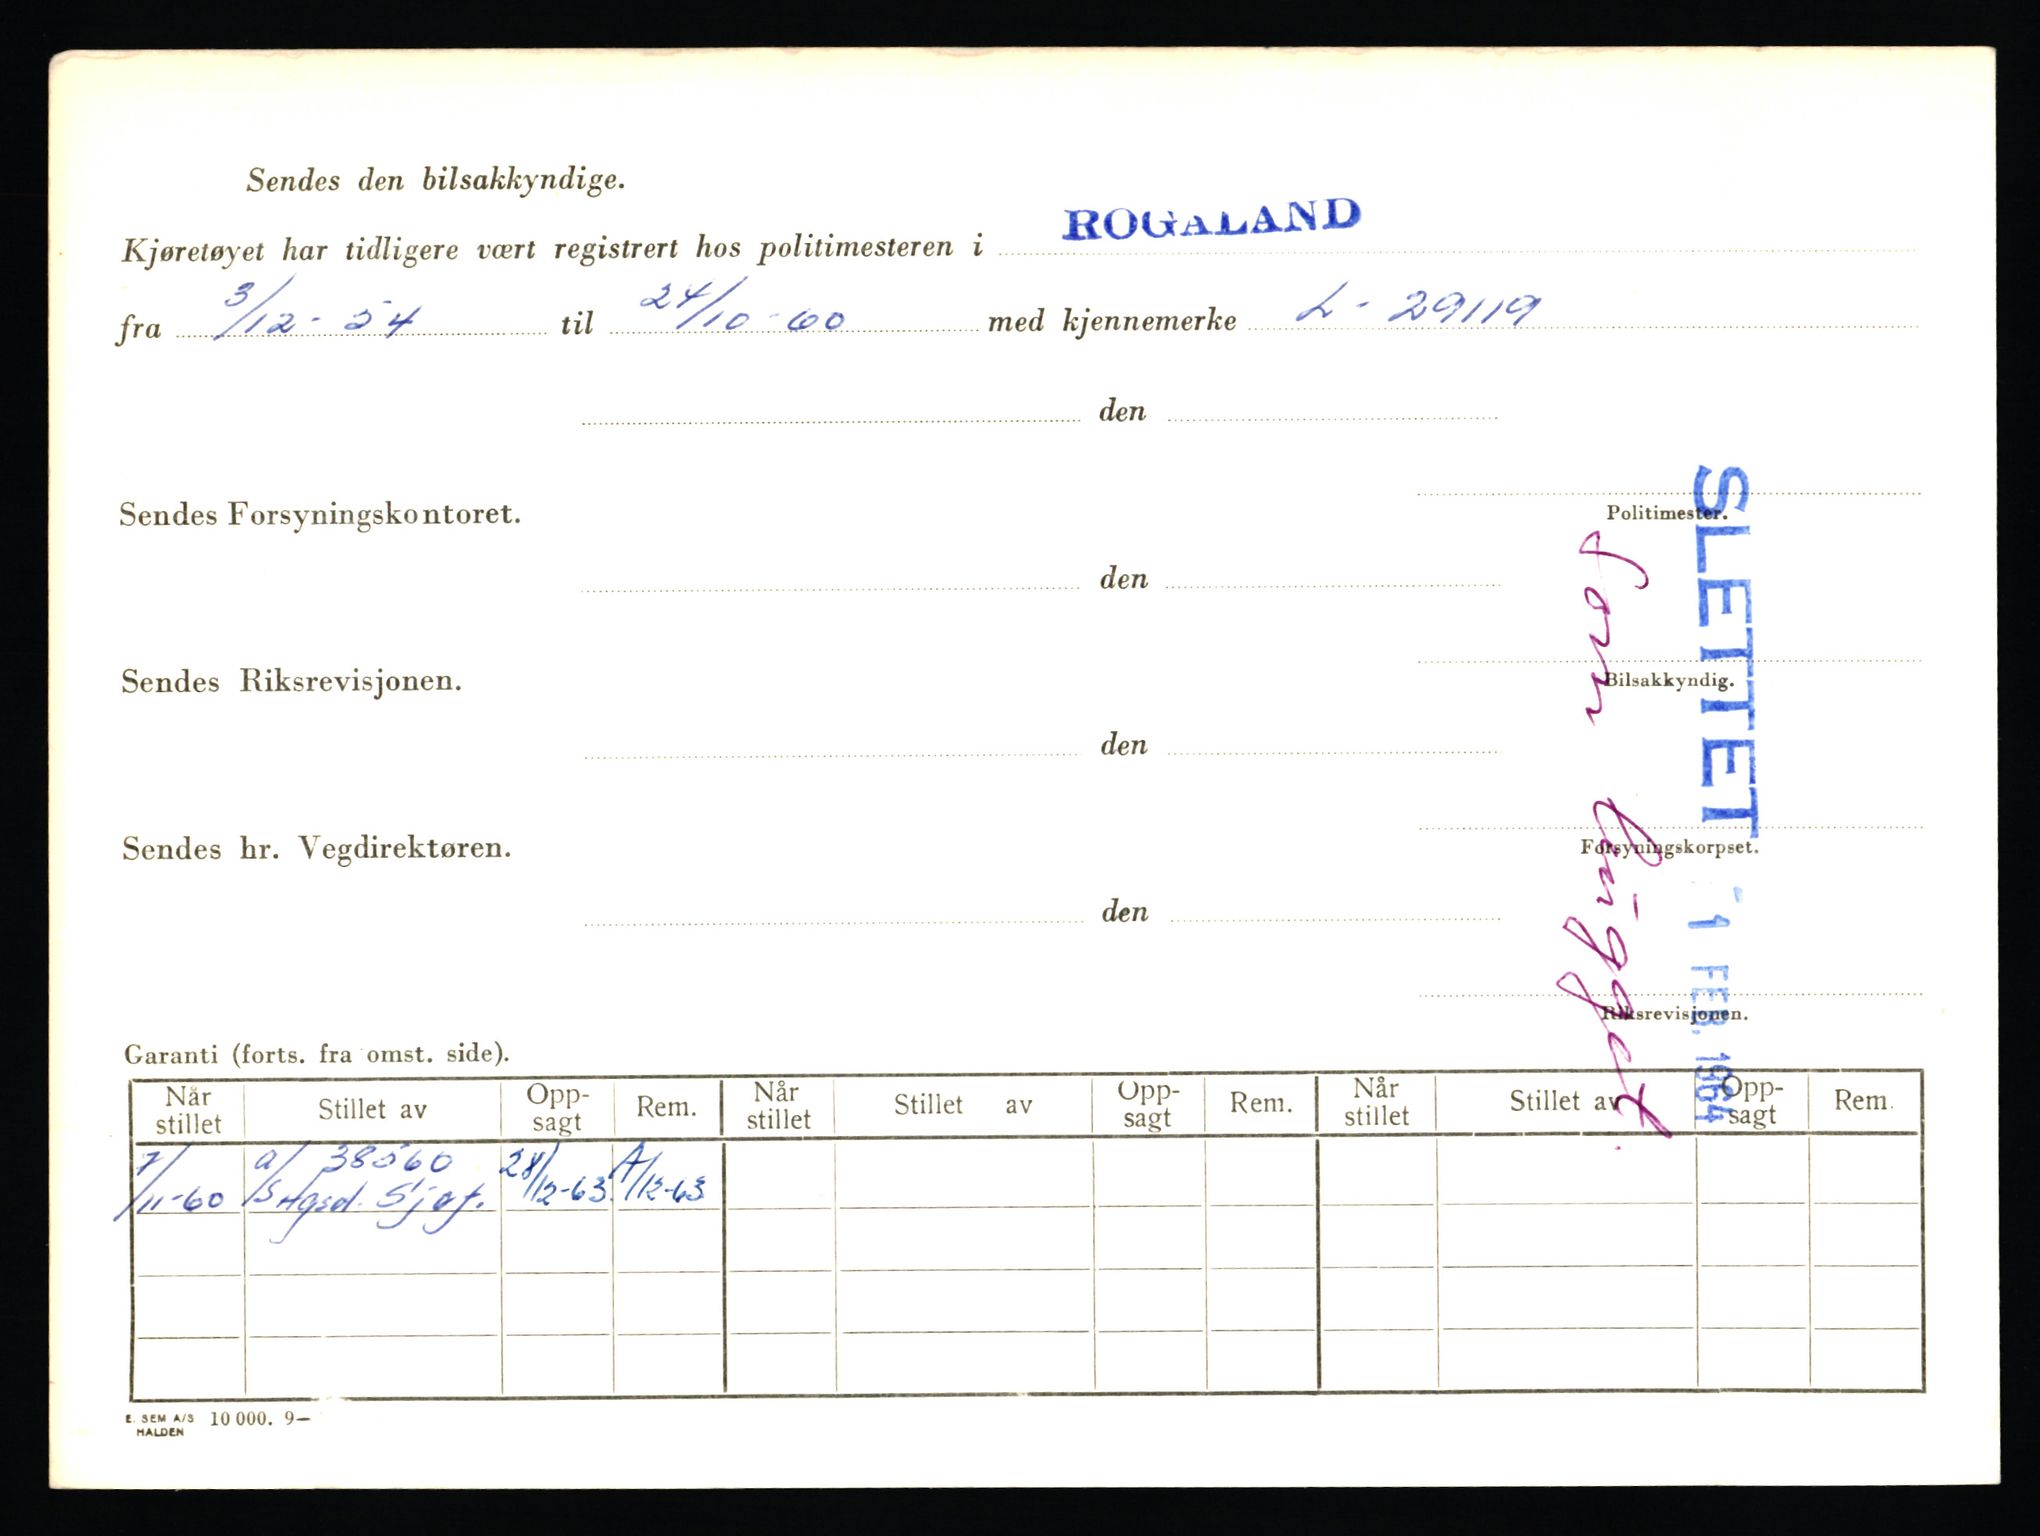 Sendes den bilsakkyndige.
Kjøretøyet har tidligere vært registrert hos politimesteren i ROGALAND
fra 3/12-54 til 24/10-60 med kjennemerke L-29119
den
Politimester.
Sendes Forsyningskontoret.
den
Bilsakkyndig.
Sendes Riksrevisjonen.
den
Forsyningskorpset.
Sendes hr. Vegdirektøren.
den
Riksrevisjonen.
SLETTET
-1 FEB. 1964
Som bygget.
Garanti (forts. fra omst. side).
Når stillet Stillet av Opp-sagt Rem. Når stillet Stillet av Opp-sagt Rem. Når stillet Stillet av Opp-sagt Rem.
7/11-60 a/ 38560 28/12-63 A/12-63
E. SEM A/S 10 000. 9—
HALDEN